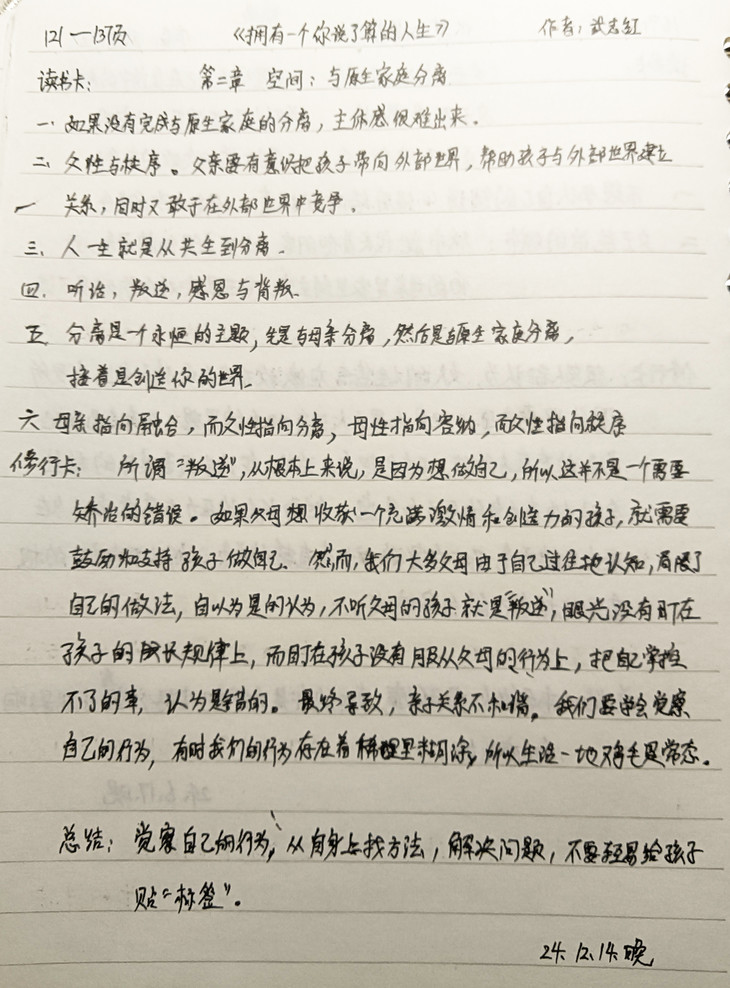 121一137页 《拥有一个你说了算的人生》 作者：武志红
读书卡： 第二章 空间：与原生家庭分离
一、如果没有完成与原生家庭的分离，主体感很难出来。
二、父性与秩序。父亲要有意识把孩子带向外部世界，帮助孩子与外部世界建立
关系，同时又敢于在外部世界中竞争。
三、人一生就是从共生到分离.
四、听话，叛逆，感恩与背叛.
五、分离是一个永恒的主题，先是与母亲分离，然后是与原生家庭分离，
接着是创造你的世界.
六 母亲指向融合，而父性指向分离，母性指向容纳，而父性指向秩序
修行卡： 所谓“叛逆”，从根本上来说，是因为想做自己，所以这并不是一个需要
矫治的错误。如果父母想收获一个充满激情和创造力的孩子，就需要
鼓励和支持孩子做自己. 然而，我们大多父母由于自己过往地认知，局限了
自己的做法，自以为是的认为，不听父母的孩子就是“叛逆”，眼光没有盯在
孩子的成长规律上，而盯在孩子没有服从父母的行为上，把自己掌控
不了的事，认为是错的。最终导致，亲子关系不和谐。我们要学会觉察
自己的行为，有时我们的行为存在着稀里糊涂，所以生活一地鸡毛是常态。
总结： 觉察自己的行为，从自身上找方法，解决问题，不要轻易给孩子
贴“标签”。
24.12.14.晚